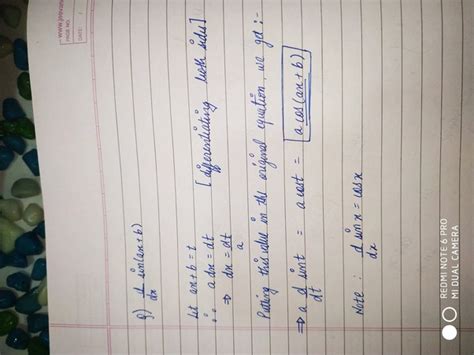 www.
PAGE NO.
DATE: /
Q) d/dx sin(ax+b)
Let ax + b = t
∴ a dx = dt [differentiating both sides]
⇒ dx = dt/a
Putting this value in the original equation, we get :-
⇒ a d/dt sin t = a cos t = a cos(ax+b)
Note : d/dx sin x = cos x
REDMI NOTE 6 PRO
MI DUAL CAMERA